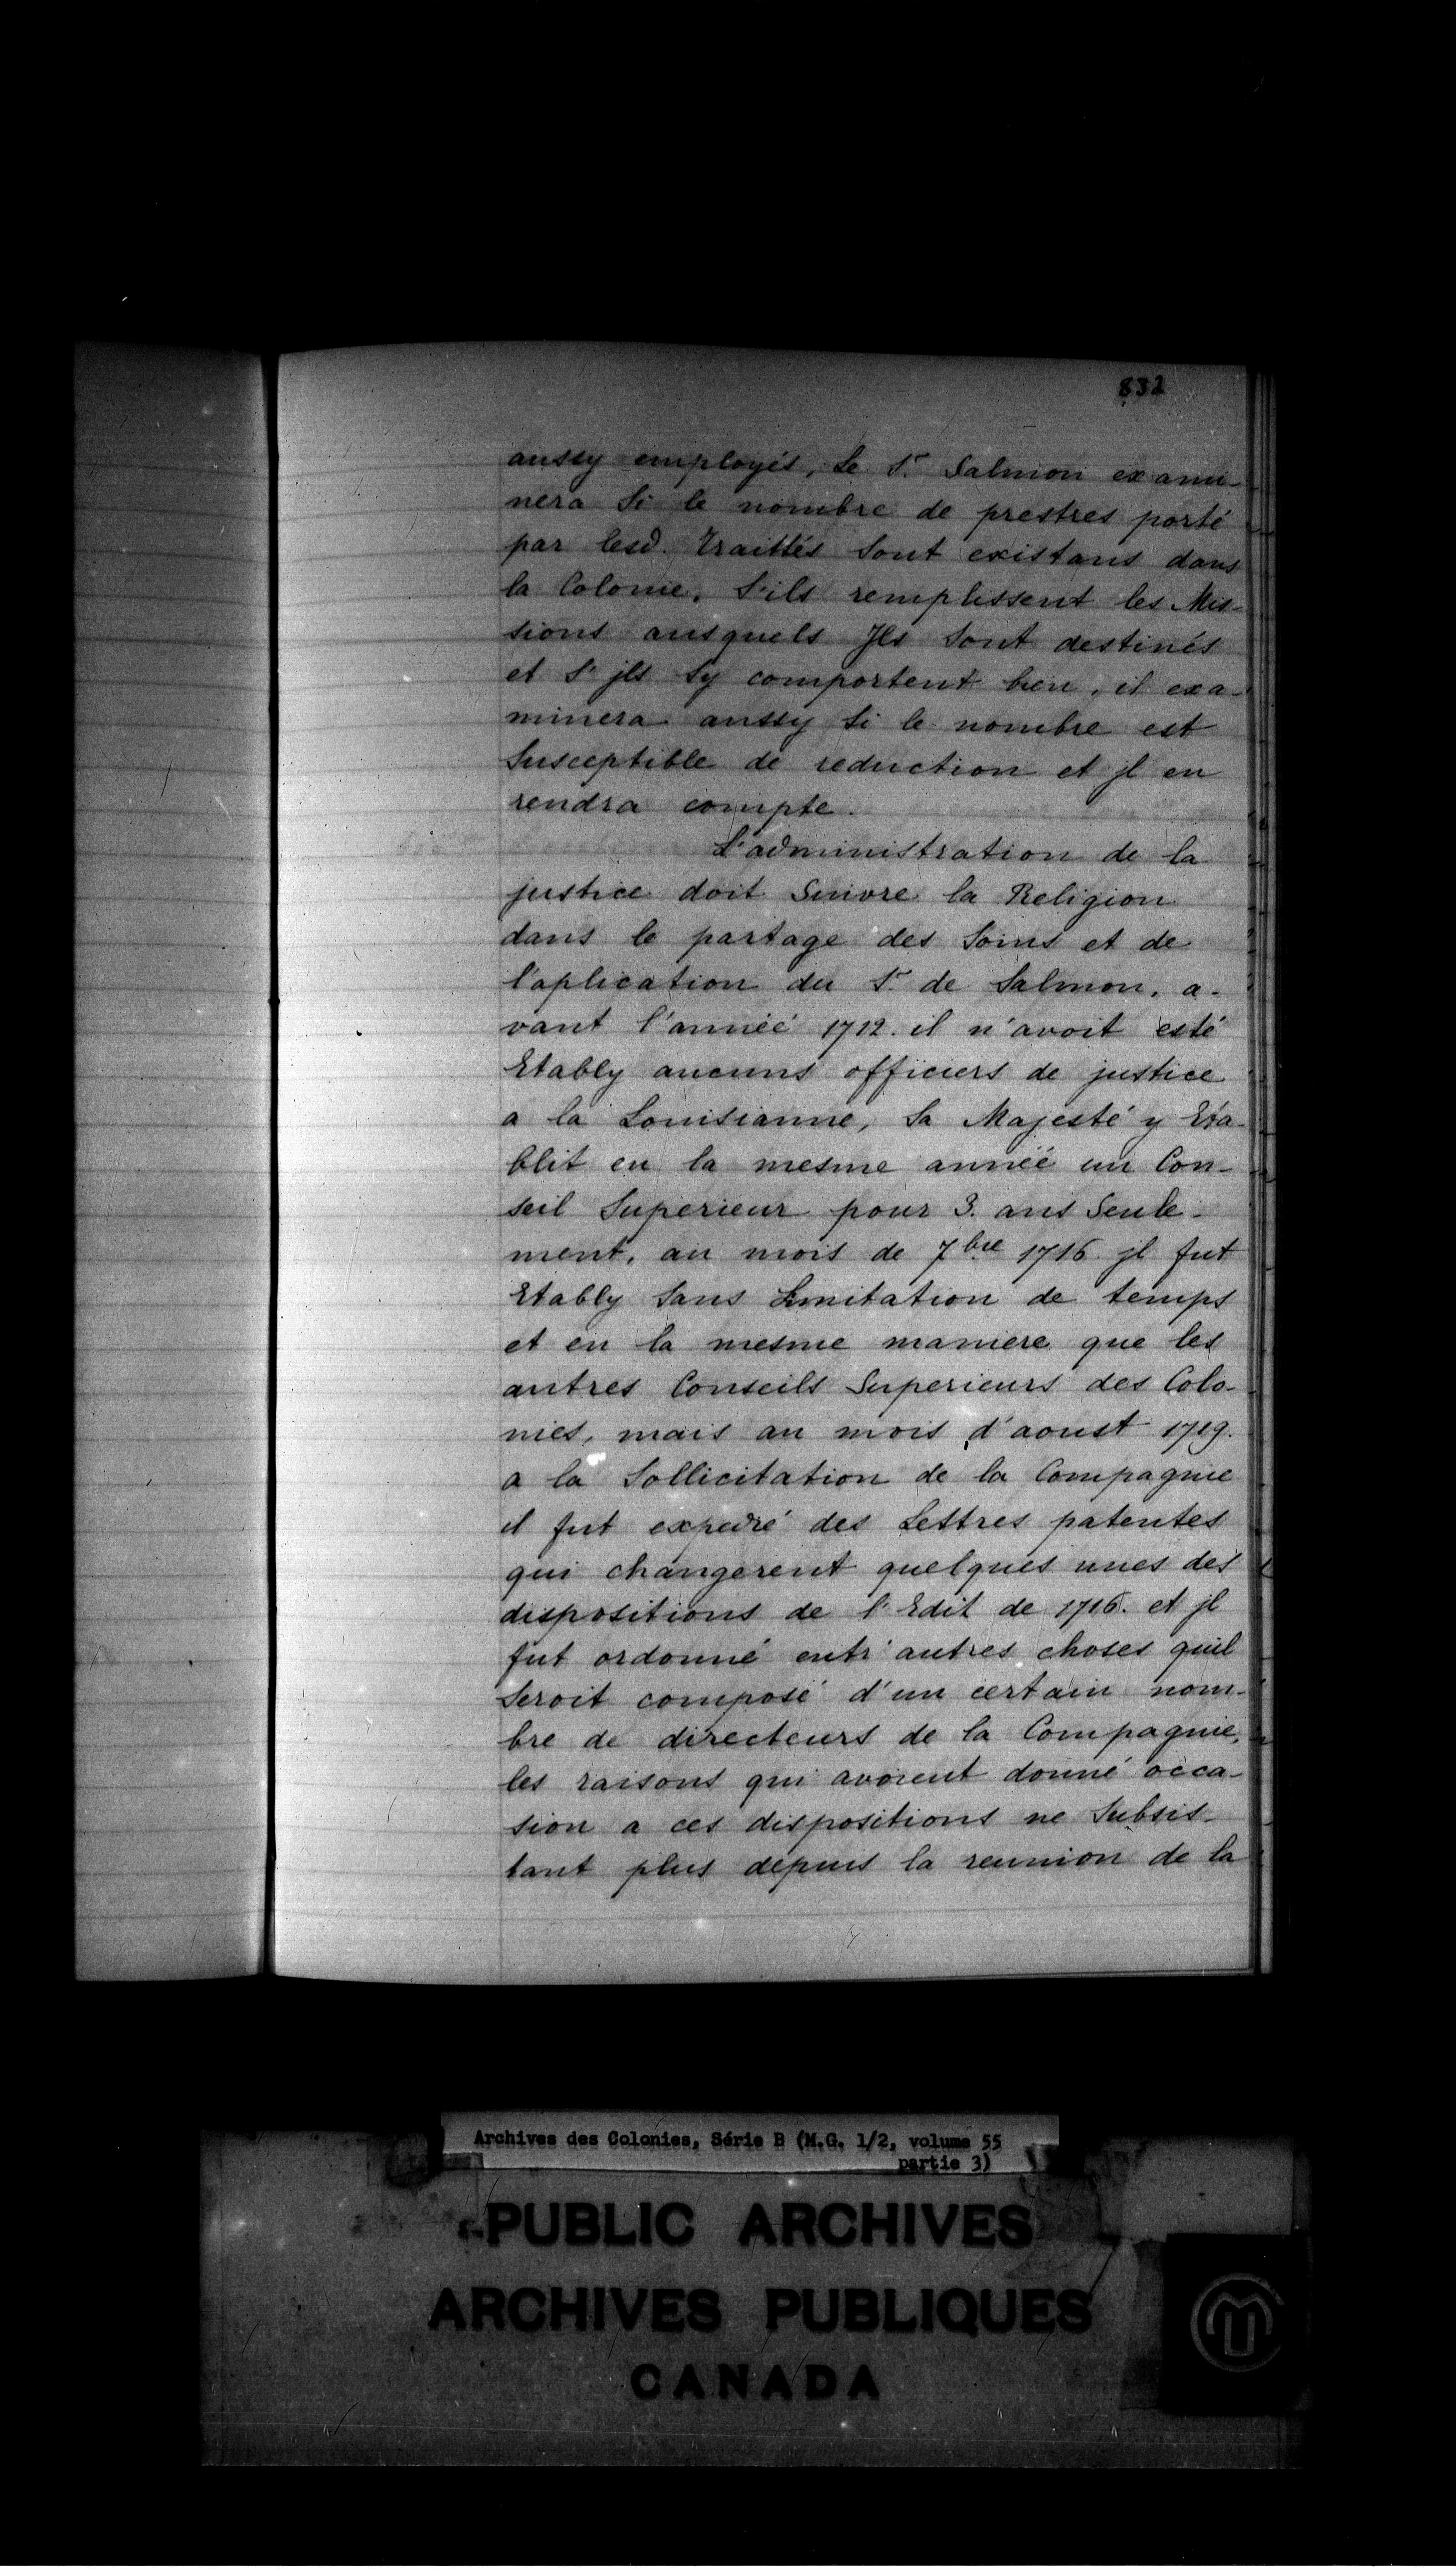 832
aussy employés, Le S.r Salmon exami-
nera Si le nombre de prestres porté
par lesd. Traittés Sont existans dans
la Colonie, S'ils remplissent les Mis-
sions ausquels Jls Sont destinés
et S'jls Sy comportent bien, il exa-
minera aussy Si le nombre est
Susceptible de reduction et jl en
rendra compte.
L'administration de la
justice doit Suivre la Religion
dans le partage des Soins et de
l'aplication du S.r de Salmon, a-
vant l'année 1712. il n'avoit esté
Etably aucuns officiers de justice
a la Louisianne, Sa Majesté y Eta-
blit en la mesme année un Con-
seil Superieur pour 3. ans Seule-
ment, au mois de 7bre 1716 jl fut
Etably Sans Limitation de temps
et en la mesme maniere que les
autres Conseils Superieurs des Colo-
nies, mais au mois d'aoust 1719.
a la Sollicitation de la Compagnie
il fut expedié des Lettres patentes
qui changerent quelques unes des
dispositions de l'Edit de 1716. et jl
fut ordonné entr'autres choses quil
Seroit composé d'un certain nom-
bre de directeurs de la Compagnie,
les raisons qui avoient donné occa-
sion a ces dispositions ne Subsis-
tant plus depuis la reunion de la
Archives des Colonies, Série B (M.G. 1/2, volume 55
partie 3)
PUBLIC ARCHIVES
ARCHIVES PUBLIQUES
CANADA